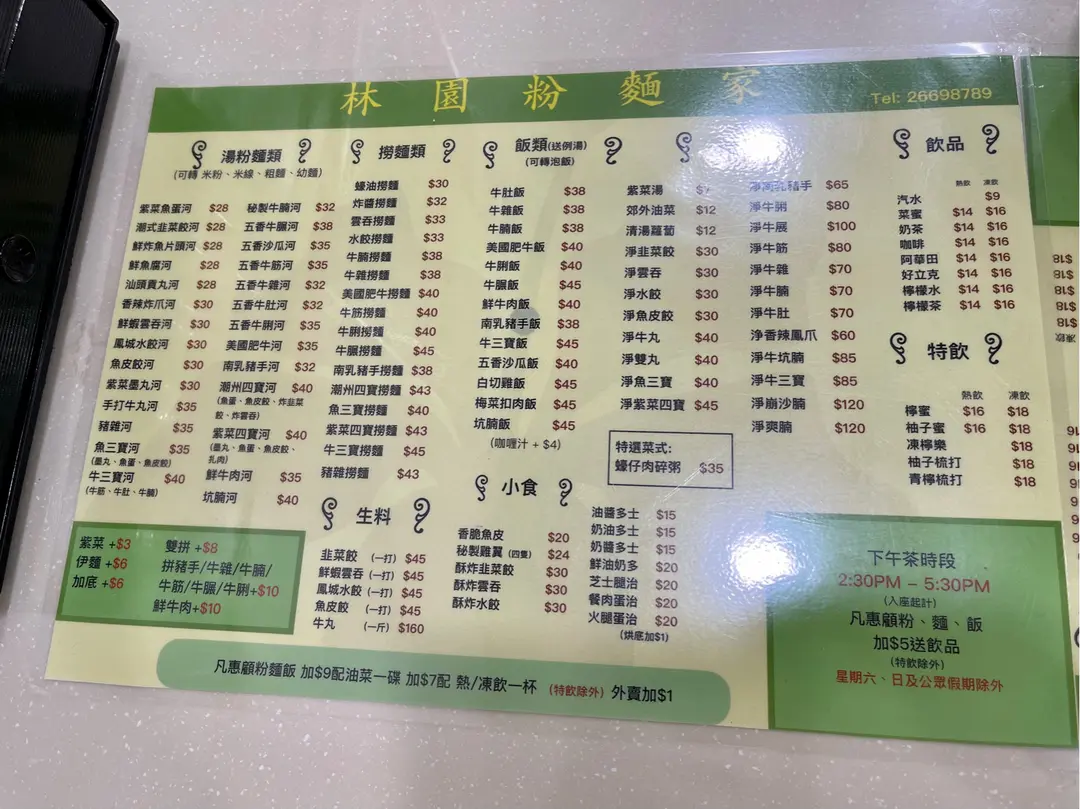 林園粉麵家
Tel: 26698789
湯粉麵類
(可轉 米粉、米線、粗麵、幼麵)
紫菜魚蛋河 $28
潮式韭菜餃河 $28
鮮炸魚片頭河 $28
鮮魚腐河 $28
汕頭貢丸河 $28
香辣炸爪河 $30
鮮蝦雲吞河 $30
鳳城水餃河 $30
魚皮餃河 $30
紫菜墨丸河 $30
手打牛丸河 $35
豬雜河 $35
魚三寶河 $35
(墨丸、魚蛋、魚皮餃)
牛三寶河 $40
(牛筋、牛肚、牛腩)
秘製牛腩河 $32
五香牛𦟌河 $38
五香沙瓜河 $35
五香牛筋河 $35
五香牛雜河 $32
五香牛肚河 $32
五香牛脷河 $35
美國肥牛河 $35
南乳豬手河 $32
潮州四寶河 $40
(魚蛋、魚皮餃、炸韭菜
餃、炸雲吞)
紫菜四寶河 $40
(墨丸、魚蛋、魚皮餃、
扎肉)
鮮牛肉河 $35
坑腩河 $40
撈麵類
蠔油撈麵 $30
炸醬撈麵 $32
雲吞撈麵 $33
水餃撈麵 $33
牛腩撈麵 $38
牛雜撈麵 $38
美國肥牛撈麵 $40
牛筋撈麵 $40
牛脷撈麵 $40
牛𦟌撈麵 $45
南乳豬手撈麵 $38
潮州四寶撈麵 $43
魚三寶撈麵 $40
紫菜四寶撈麵 $43
牛三寶撈麵 $45
豬雜撈麵 $43
飯類(送例湯)
(可轉泡飯)
牛肚飯 $38
牛雜飯 $38
牛腩飯 $38
美國肥牛飯 $40
牛脷飯 $40
牛𦟌飯 $45
鮮牛肉飯 $40
南乳豬手飯 $38
牛三寶飯 $45
五香沙瓜飯 $40
白切雞飯 $45
梅菜扣肉飯 $45
坑腩飯 $45
(咖喱汁 + $4)
紫菜湯
郊外油菜 $12
清湯蘿蔔 $12
淨韭菜餃 $30
淨雲吞 $30
淨水餃 $30
淨魚皮餃 $30
淨牛丸 $40
淨雙丸 $40
淨魚三寶 $40
淨紫菜四寶 $45
淨南乳豬手 $65
淨牛脷 $80
淨牛展 $100
淨牛筋 $80
淨牛雜 $70
淨牛腩 $70
淨牛肚 $70
淨香辣鳳爪 $60
淨牛坑腩 $85
淨牛三寶 $85
淨崩沙腩 $120
淨爽腩 $120
特選菜式:
蠔仔肉碎粥 $35
飲品
熱飲 凍飲
汽水 $9
菜蜜 $14 $16
奶茶 $14 $16
咖啡 $14 $16
阿華田 $14 $16
好立克 $14 $16
檸檬水 $14 $16
檸檬茶 $14 $16
特飲
熱飲 凍飲
檸蜜 $16 $18
柚子蜜 $16 $18
凍檸樂 $18
柚子梳打 $18
青檸梳打 $18
生料
韭菜餃 (一打) $45
鮮蝦雲吞 (一打) $45
鳳城水餃 (一打) $45
魚皮餃 (一打) $45
牛丸 (一斤) $160
小食
香脆魚皮 $20
秘製雞翼 (四隻) $24
酥炸韭菜餃 $30
酥炸雲吞 $30
酥炸水餃 $30
油醬多士 $15
奶油多士 $15
奶醬多士 $15
鮮油奶多 $20
芝士腿治 $20
餐肉蛋治 $20
火腿蛋治 $20
(烘底加$1)
紫菜 +$3
伊麵 +$6
加底 +$6
雙拼 +$8
拼豬手/牛雜/牛腩/
牛筋/牛𦟌/牛脷+$10
鮮牛肉+$10
下午茶時段
2:30PM – 5:30PM
(入座起計)
凡惠顧粉、麵、飯
加$5送飲品
(特飲除外)
星期六、日及公眾假期除外
凡惠顧粉麵飯 加$9配油菜一碟 加$7配 熱/凍飲一杯 (特飲除外) 外賣加$1